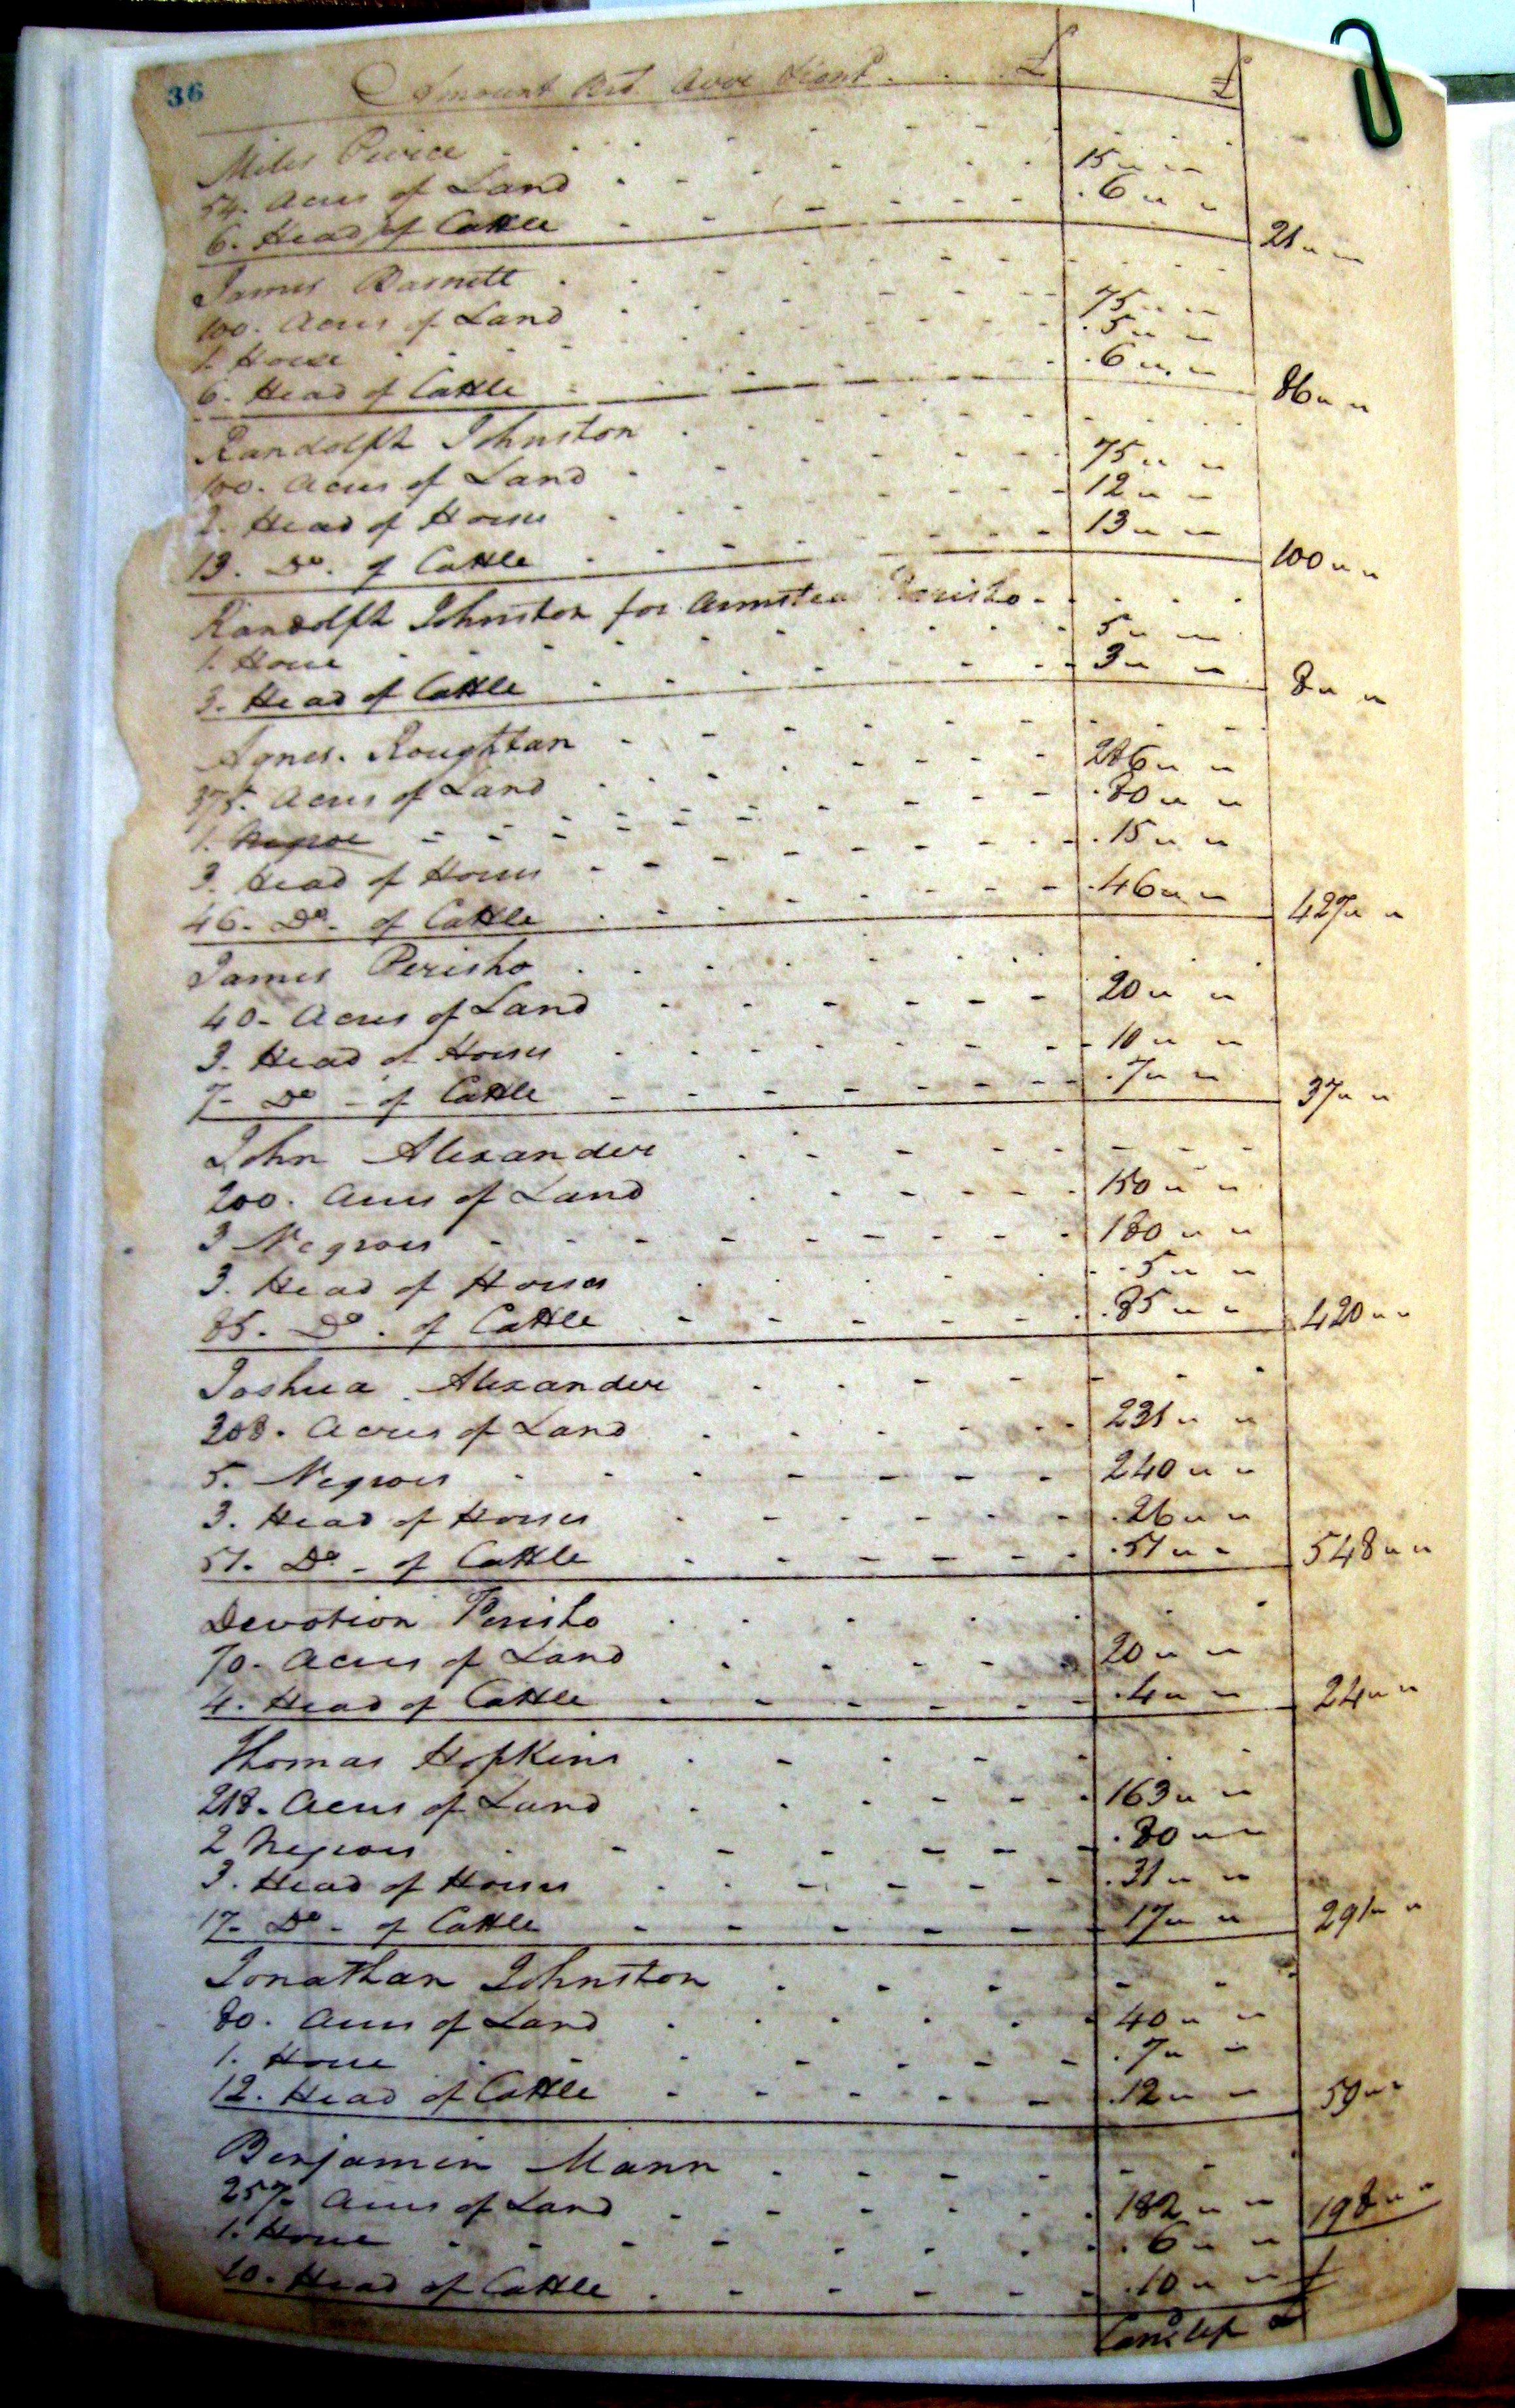 36
Amount Brt. Over . . . £ £
Miles Price
54. Acres of Land 15 " "
6. Head of Cattle 6 " " 21 " "
James Barnett
100. Acres of Land 75 " "
1. Horse 5 " "
6. Head of Cattle 6 " " 86 " "
Randolph Johnston
100. Acres of Land 75 " "
2. Head of Horses 12 " "
13. Do. of Cattle 13 " " 100 " "
Randolph Johnston for Armstea Perisho
1. Horse 5 " "
3. Head of Cattle 3 " " 8 " "
Agnes. Roughton
375. Acres of Land 286 " "
1. Negroe 80 " "
3. Head of Horses 15 " "
46. Do. of Cattle 46 " " 427 " "
James Perisho
40. Acres of Land 20 " "
3. Head of Horses 10 " "
7. Do. of Cattle 7 " " 37 " "
John Alexander
200. Acres of Land 150 " "
3 Negroes 180 " "
3. Head of Horses 5 " "
85. Do. of Cattle 85 " " 420 " "
Joshua Alexander
308. Acres of Land 231 " "
5. Negroes 240 " "
3. Head of Horses 26 " "
51. Do. of Cattle 51 " " 548 " "
Devotion Perisho
70. Acres of Land 20 " "
4. Head of Cattle 4 " " 24 " "
Thomas Hopkins
218. Acres of Land 163 " "
2 Negroes 80 " "
3. Head of Horses 31 " "
17. Do. of Cattle 17 " " 291 " "
Jonathan Johnston
80. Acres of Land 40 " "
1. Horse 7 " "
12. Head of Cattle 12 " " 59 " "
Benjamin Mann
257. Acres of Land 182 " " 198 " "
1. Horse 6 " "
10. Head of Cattle 10 " "
Card. up £